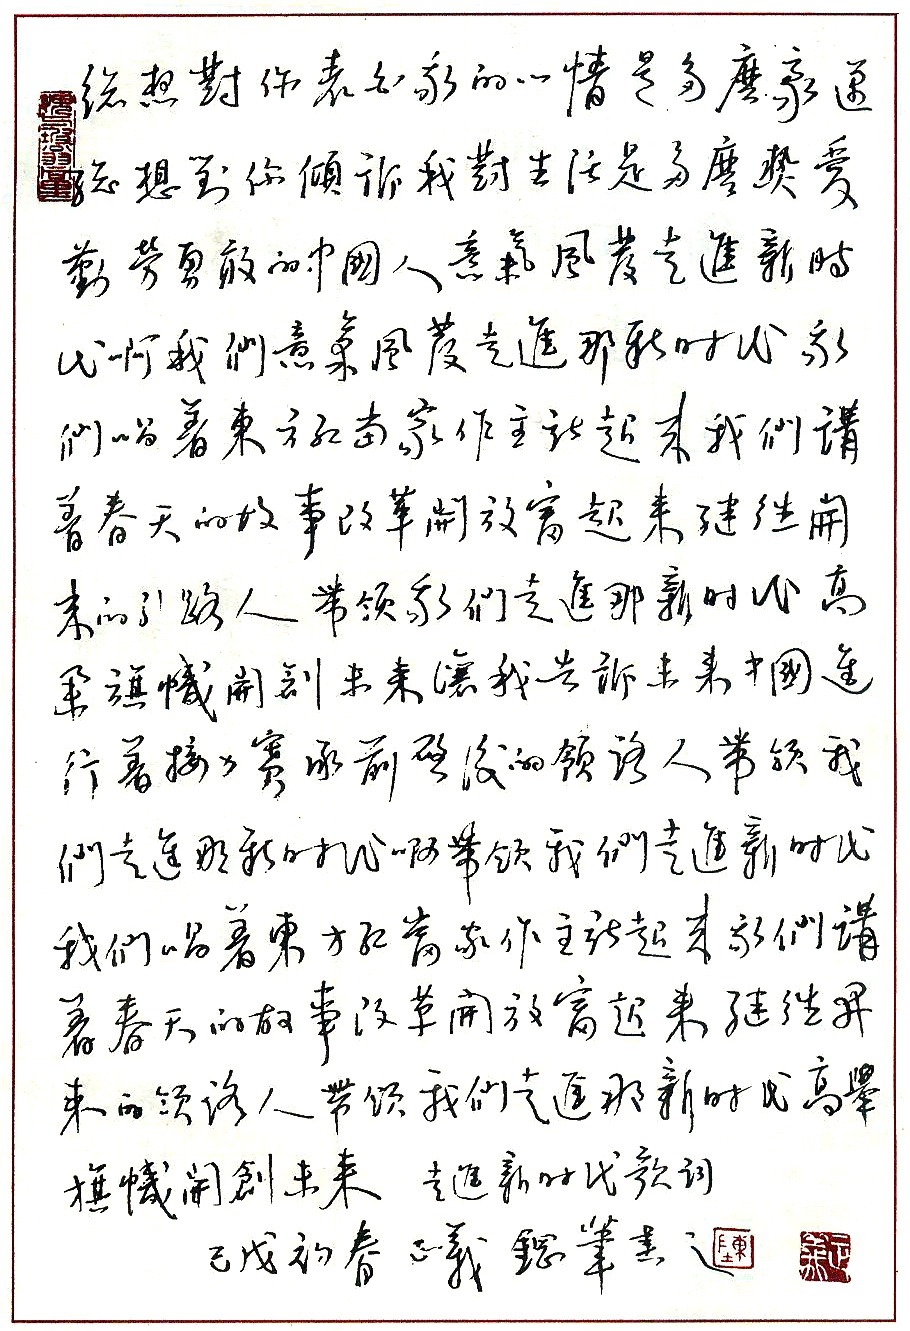 總想對你表白我的心情是多麼豪邁
總想對你傾訴我對生活是多麼熱愛
勤勞勇敢的中國人意氣風發走進新時
代啊我們意氣風發走進那新时代我
們唱着東方紅當家作主站起來我們講
着春天的故事改革開放富起來繼往開
來的引路人带領我們走進那新时代高
舉旗幟開創未來讓我告訴未來中國進
行着接力賽承前啓後的領路人带領我
們走進那新时代啊带領我們走進新时代
我們唱着東方紅當家作主站起來我們講
着春天的故事改革開放富起來繼往開
來的領路人带領我們走進那新时代高舉
旗幟開創未來 走進新时代歌詞
己戊初春 正義 鋼筆書之